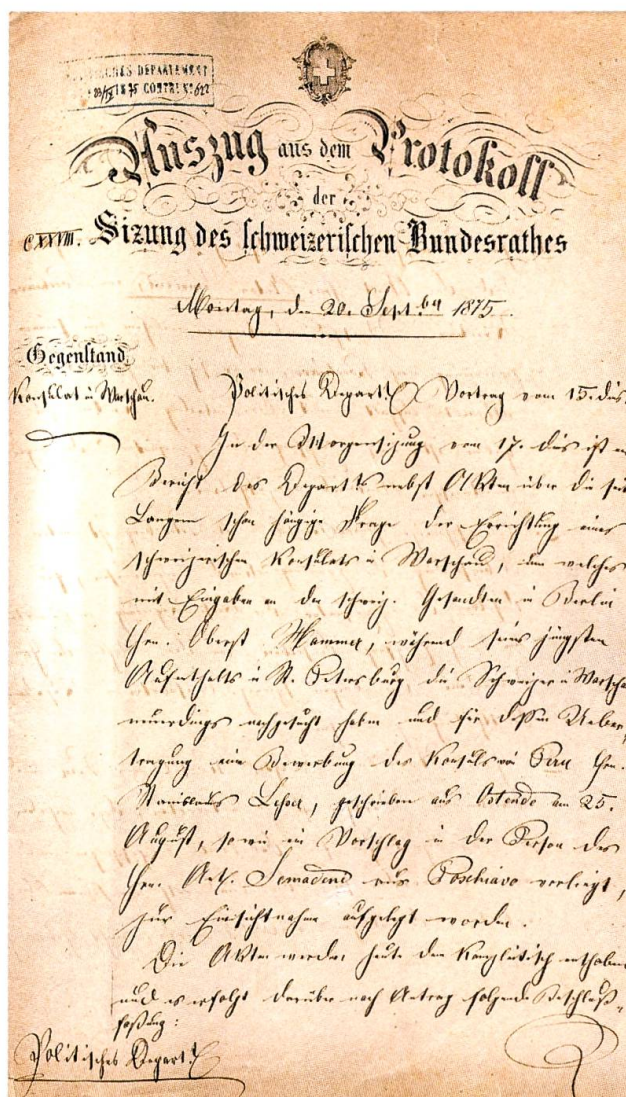 DEPARTEMENT
1875 CONTR. No 622
Auszug aus dem Protokoll
der
CXXVIII. Sizung des schweizerischen Bundesrathes
Montag, den 20. Septber 1875.
Gegenstand
Konsulat in Warschau.
Politisches Departt Vortrag vom 15. dies.
In der Morgensizung vom 17. dies ist
Bericht des Departts nebst Akten über die
Langem schon hängige Frage der Errichtung eines
schweizerischen Konsulats in Warschau, um welches
mit Eingaben an den schweiz. Gesandten in Berlin
Hrn. Oberst Hammer, während seines jüngsten
Aufenthalts in St. Petersburg die Schweizer in Warscha
neuerdings nachgesucht haben und für dessen Ueber-
tragung eine Bewerbung des Konsuls von Peru Hrn.
Stanislaus Lesser, geschrieben aus Ostende am 25.
August, sowie ein Vorschlag in der Person des
Hrn. Ant. Semadeni aus Poschiavo vorliegt,
zur Einsichtnahme aufgelegt worden.
Die Akten werden heute dem Kanzleitisch enthoben
und es erfolgt darüber nach Antrag folgende Beschluß-
faßung:
Politisches Departt